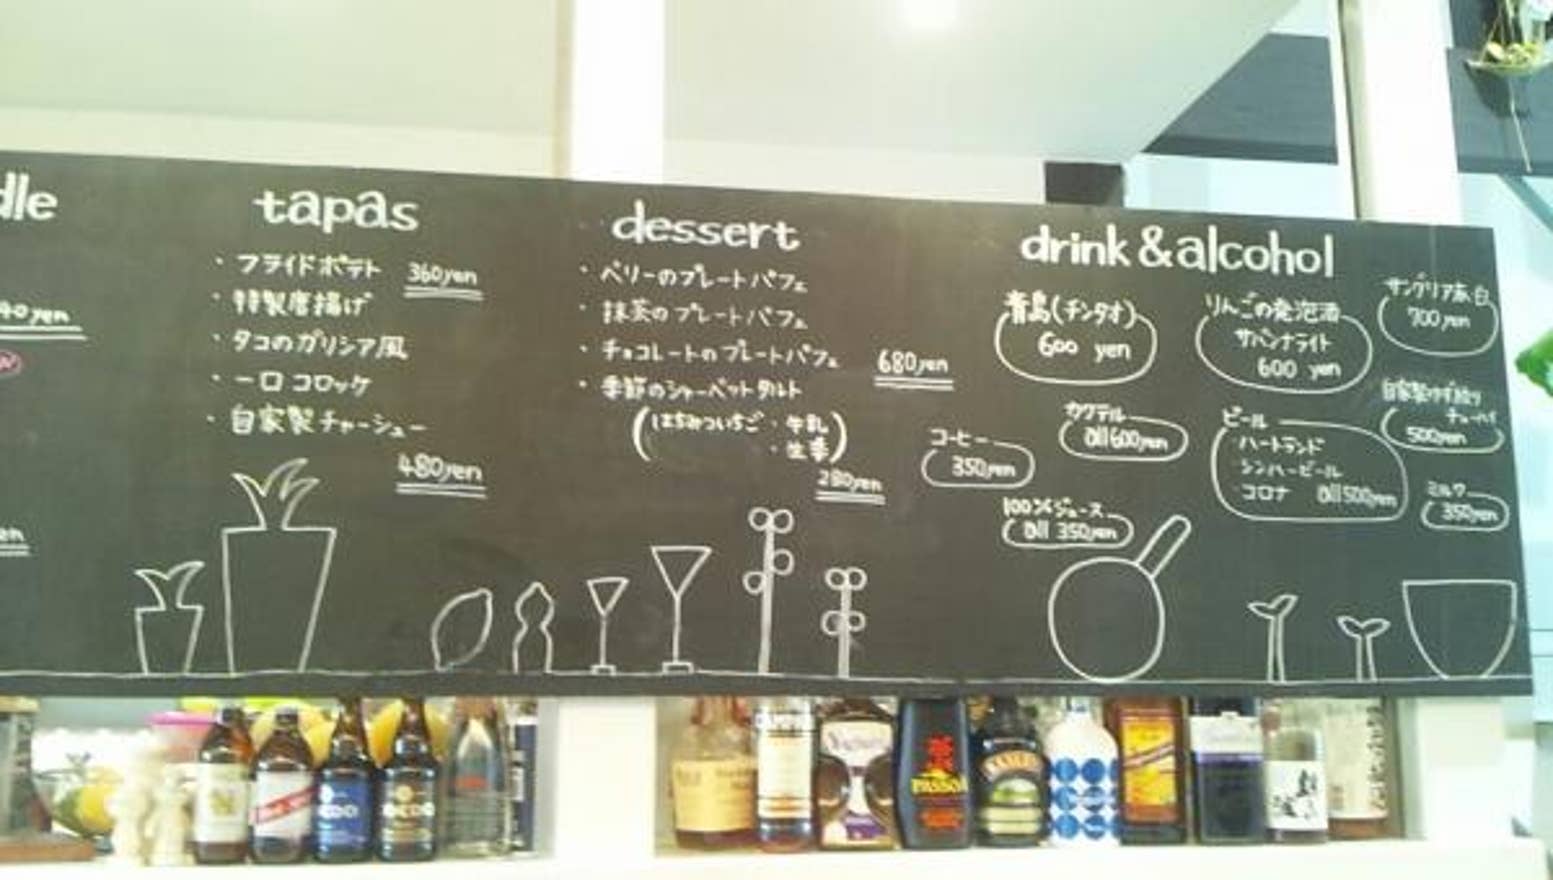 dle
40yen
en
tapas
・フライドポテト 360yen
・特製唐揚げ
・タコのガリシア風
・一口コロッケ
・自家製チャーシュー
480yen
dessert
・ベリーのプレートパフェ
・抹茶のプレートパフェ
・チョコレートのプレートパフェ 680yen
・季節のシャーベットタルト
(はちみついちご・牛乳
・生姜)
280yen
drink & alcohol
青島(チンタオ)
600 yen
りんごの発泡酒
サバンナライト
600 yen
サングリア赤白
700yen
カクテル
all 600yen
コーヒー
350yen
100%ジュース
all 350yen
ビール
・ハートランド
・シンハービール
・コロナ all 500yen
自家製ゆず搾り
チューハイ
500yen
ミルク
350yen
BAILEYS